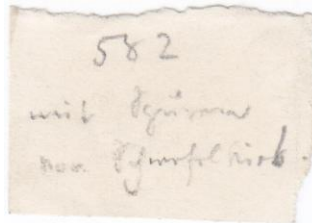 582
mit Spuren
von Schwefelkies.